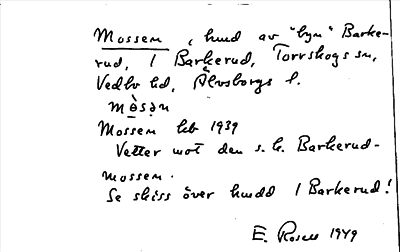 Mossem, hmd av "byn" Barke-
rud, 1 Barkerud, Torrskogs sn,
Vedbo hd, Älvsborgs l.
mɵ̀sən
Mossem hb 1939
Vetter mot den s.k. Barkerud-
mossem.
Se skiss över hmdd 1 Barkerud!
E. Rosell 1949